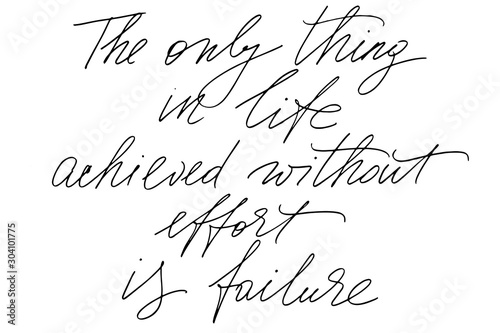 The only thing
in life
achieved without
effort
is failure
Adobe Stock | #304101775